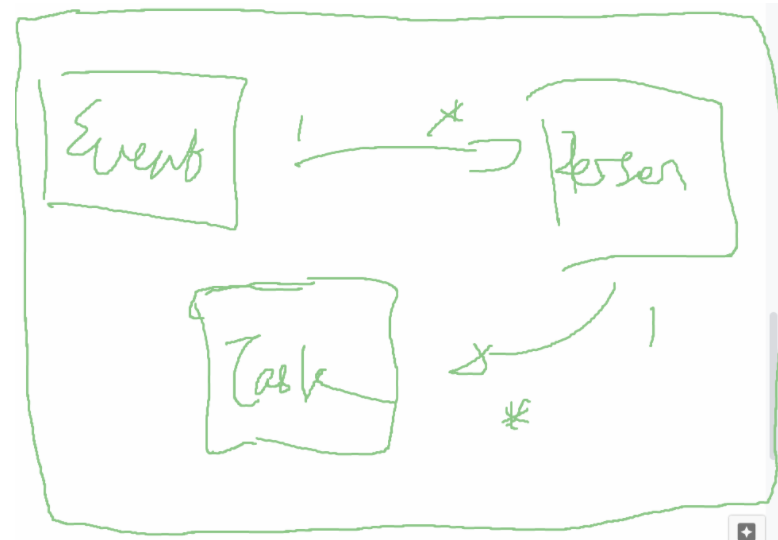 Event
1 *
Person
1
Task
*